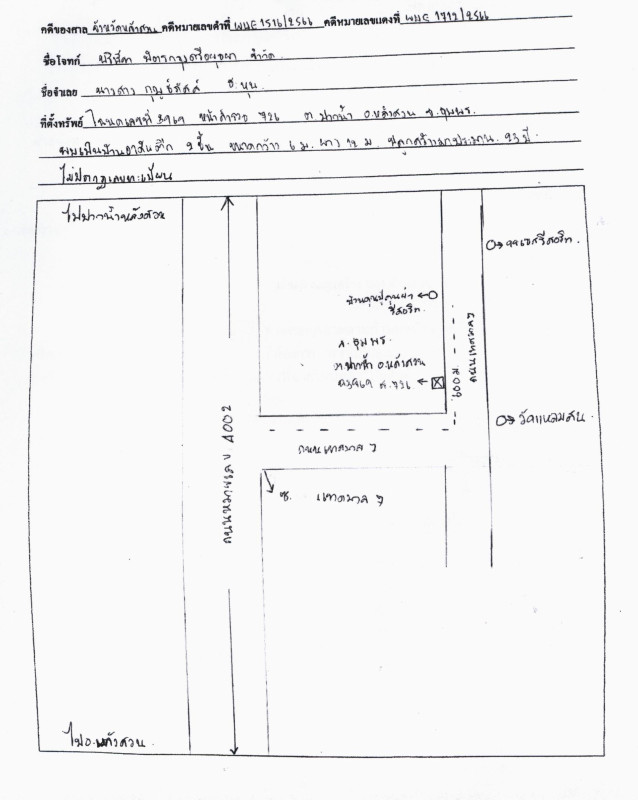 คดีของศาล จังหวัดหลังสวน คดีหมายเลขดำที่ ผบE 1516/2566 คดีหมายเลขแดงที่ ผบE 1712/2566
ชื่อโจทก์ บริษัท จำกัด
ชื่อจำเลย นางสาว
ที่ตั้งทรัพย์ โฉนดเลขที่ 3969 หน้าสำรวจ 736 ต.ปากน้ำ อ.หลังสวน จ.ชุมพร.
ขนาดกว้าง 6 ม. ยาว ม. ปลูกสร้างมาประมาณ 23 ปี.
ไม่ปรากฏเลขทะเบียน
ไปปากน้ำหลังสวน
รีสอร์ท.
บ้านคุณปู่คุณย่า
รีสอร์ท.
จ. ชุมพร.
ต.ปากน้ำ อ.หลังสวน
ฉ.3969 ส.736
600 ม
ถนนเทศบาล 7
วัดแหลมสน
ถนนเทศบาล 7
ซ. เทศบาล 7
ถนนหมายเลข 4002
ไปอ.หลังสวน.